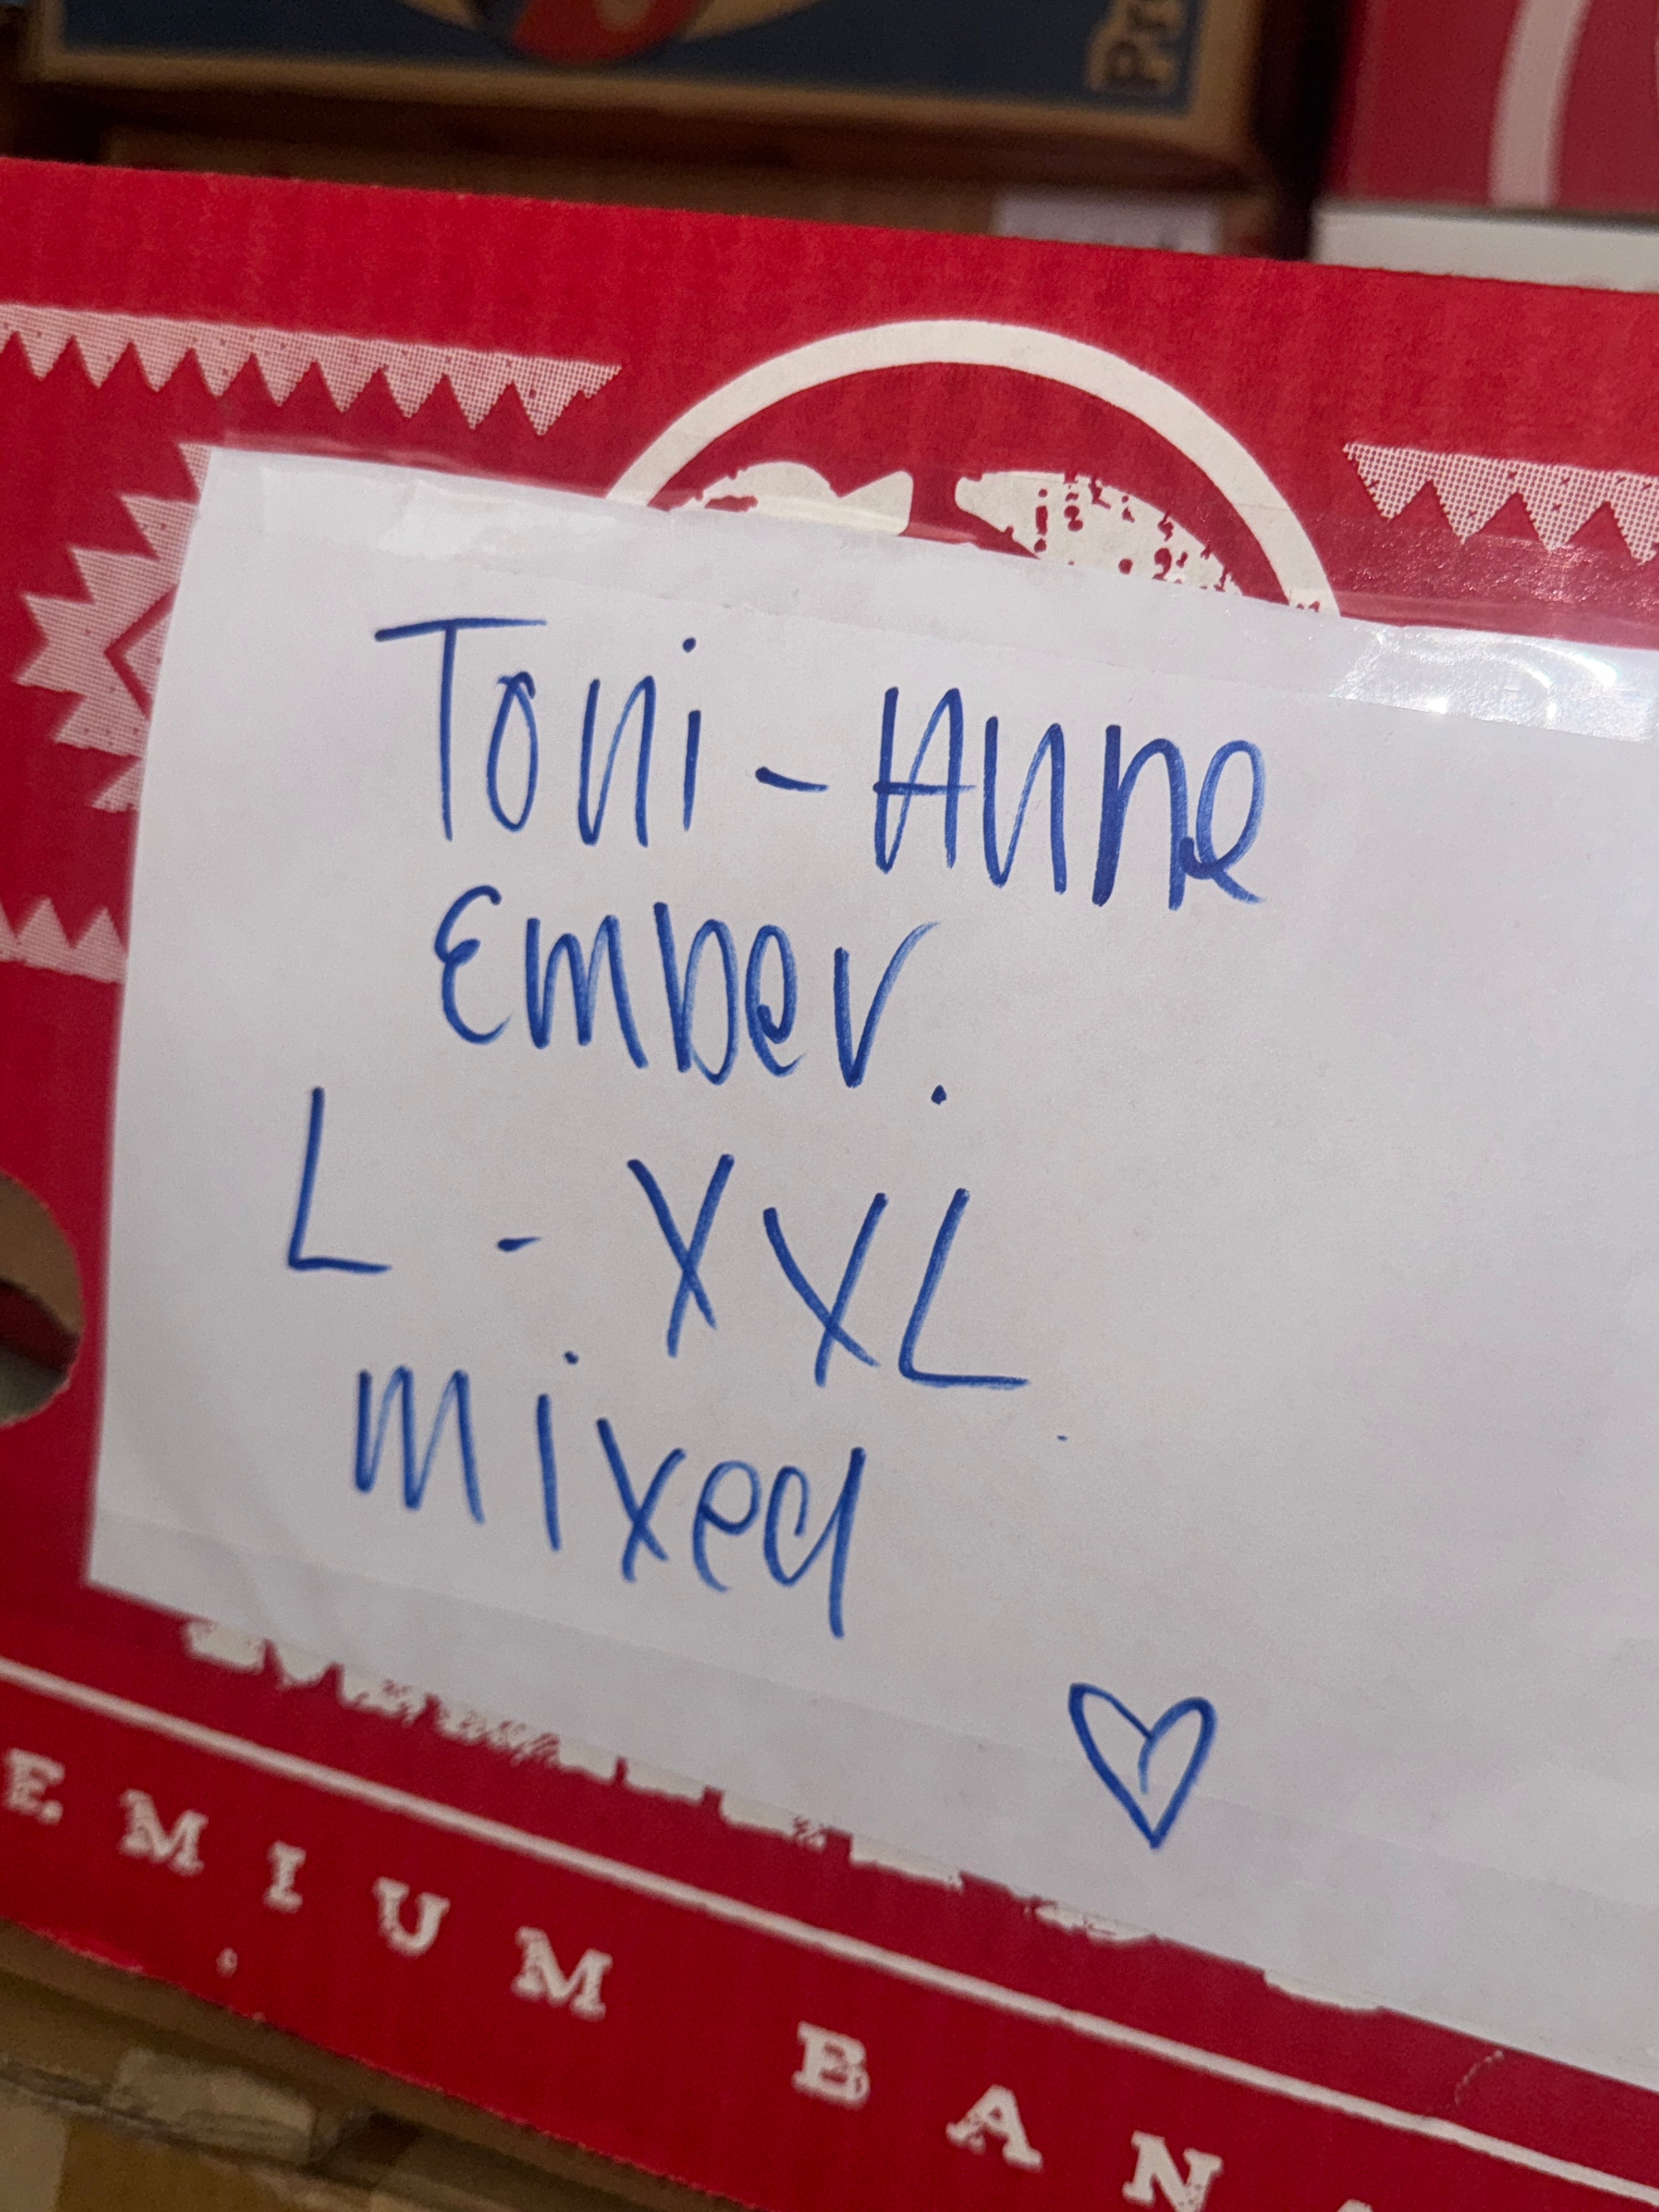 Toni-Anne
Ember.
L - XXL
mixed
EMIUM BAN